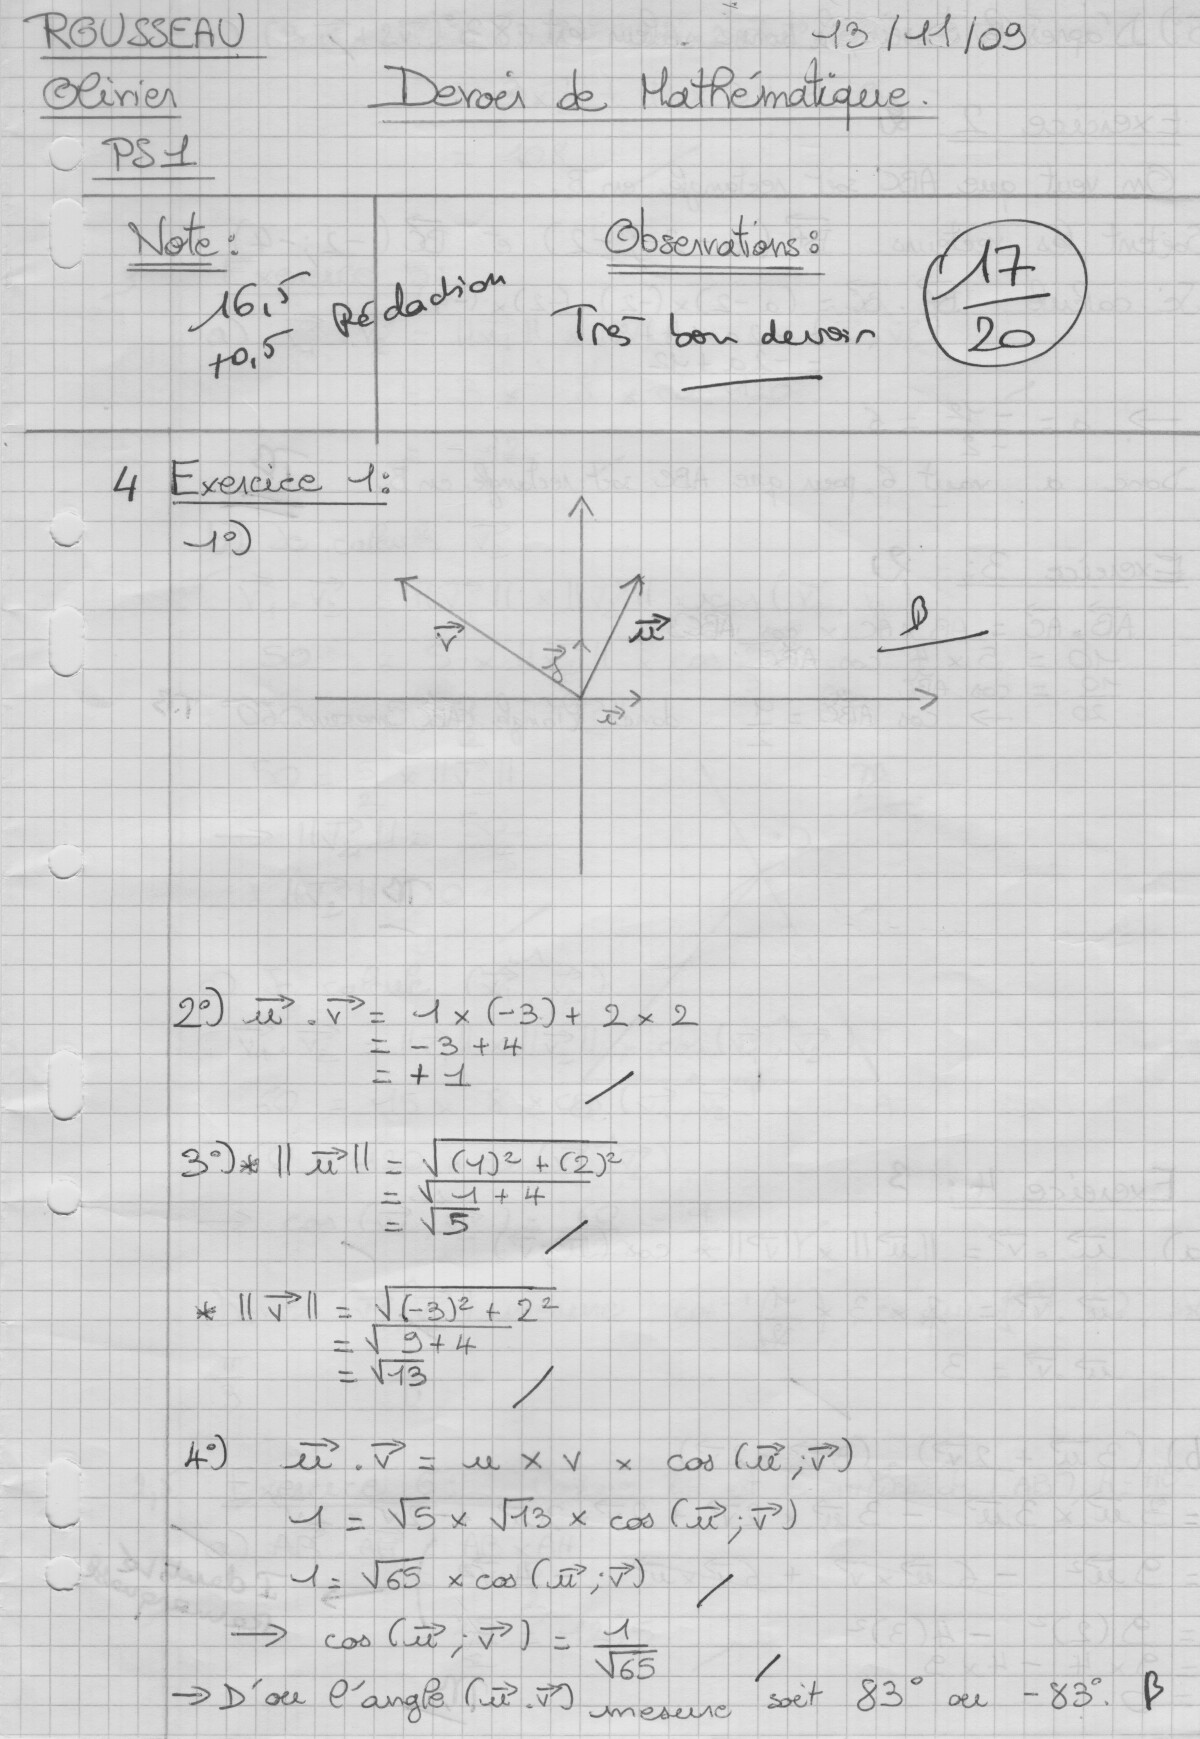 ROUSSEAU
13/11/09
Olivier
Devoir de Mathématique.
PS1
Note:
Observations:
16,5
+0,5
Rédaction
Très bon devoir
17
20
4 Exercice 1:
1°)
v
u
j
i
B
2°) u . v = 1 × (-3) + 2 × 2
= - 3 + 4
= + 1
3°) * || u || = √(1)² + (2)²
= √1 + 4
= √5
* || v || = √(-3)² + 2²
= √9 + 4
= √13
4°) u . v = u × v × cos (u ; v)
1 = √5 × √13 × cos (u ; v)
1 = √65 × cos (u ; v)
→ cos (u ; v) = 1/√65
→ D'ou l'angle (u . v) mesure soit 83° ou -83°. B